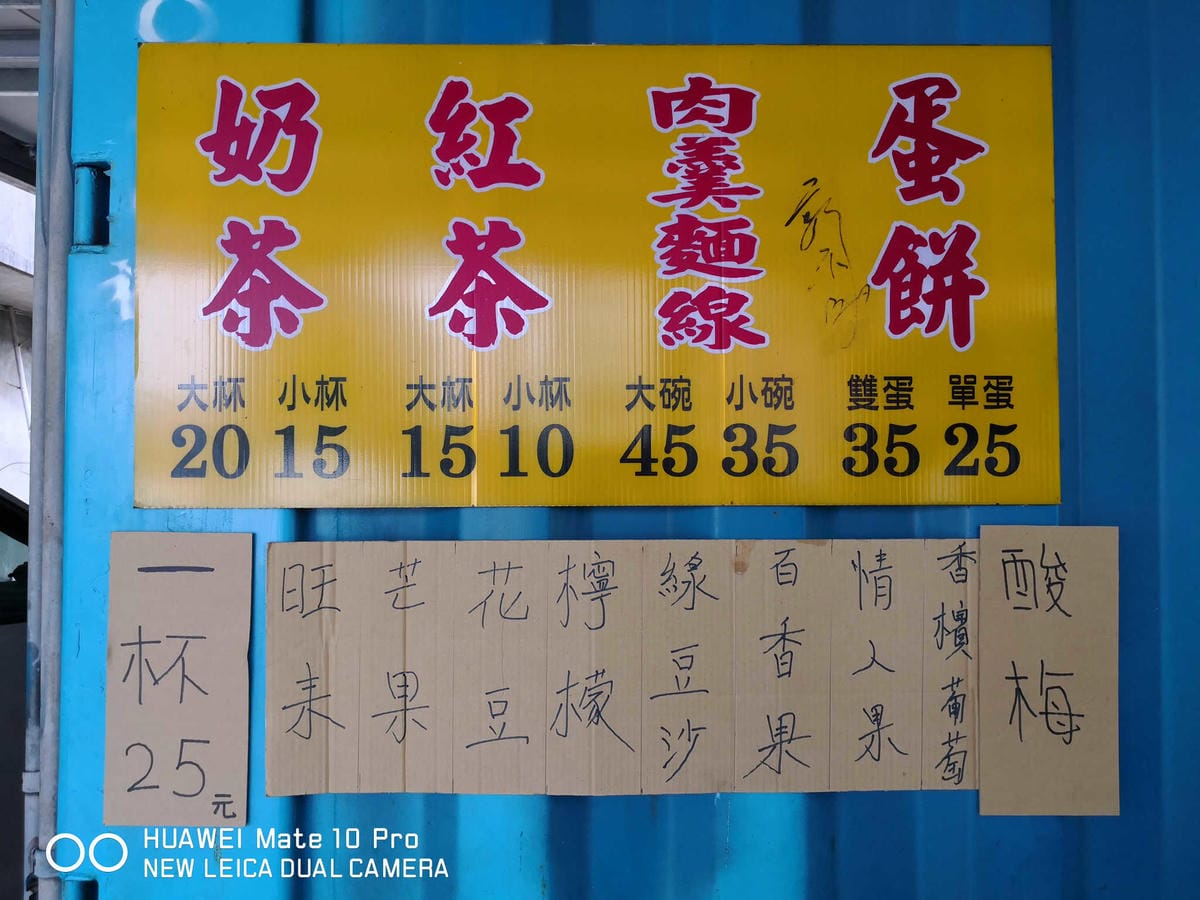 蛋餅
雙蛋 單蛋
35 25
肉羹麵線
大碗 小碗
45 35
紅茶
大杯 小杯
15 10
奶茶
大杯 小杯
20 15
酸梅
香檳葡萄
情人果
百香果
線豆沙
檸檬
花豆
芒果
旺来
一杯25元
HUAWEI Mate 10 Pro
NEW LEICA DUAL CAMERA